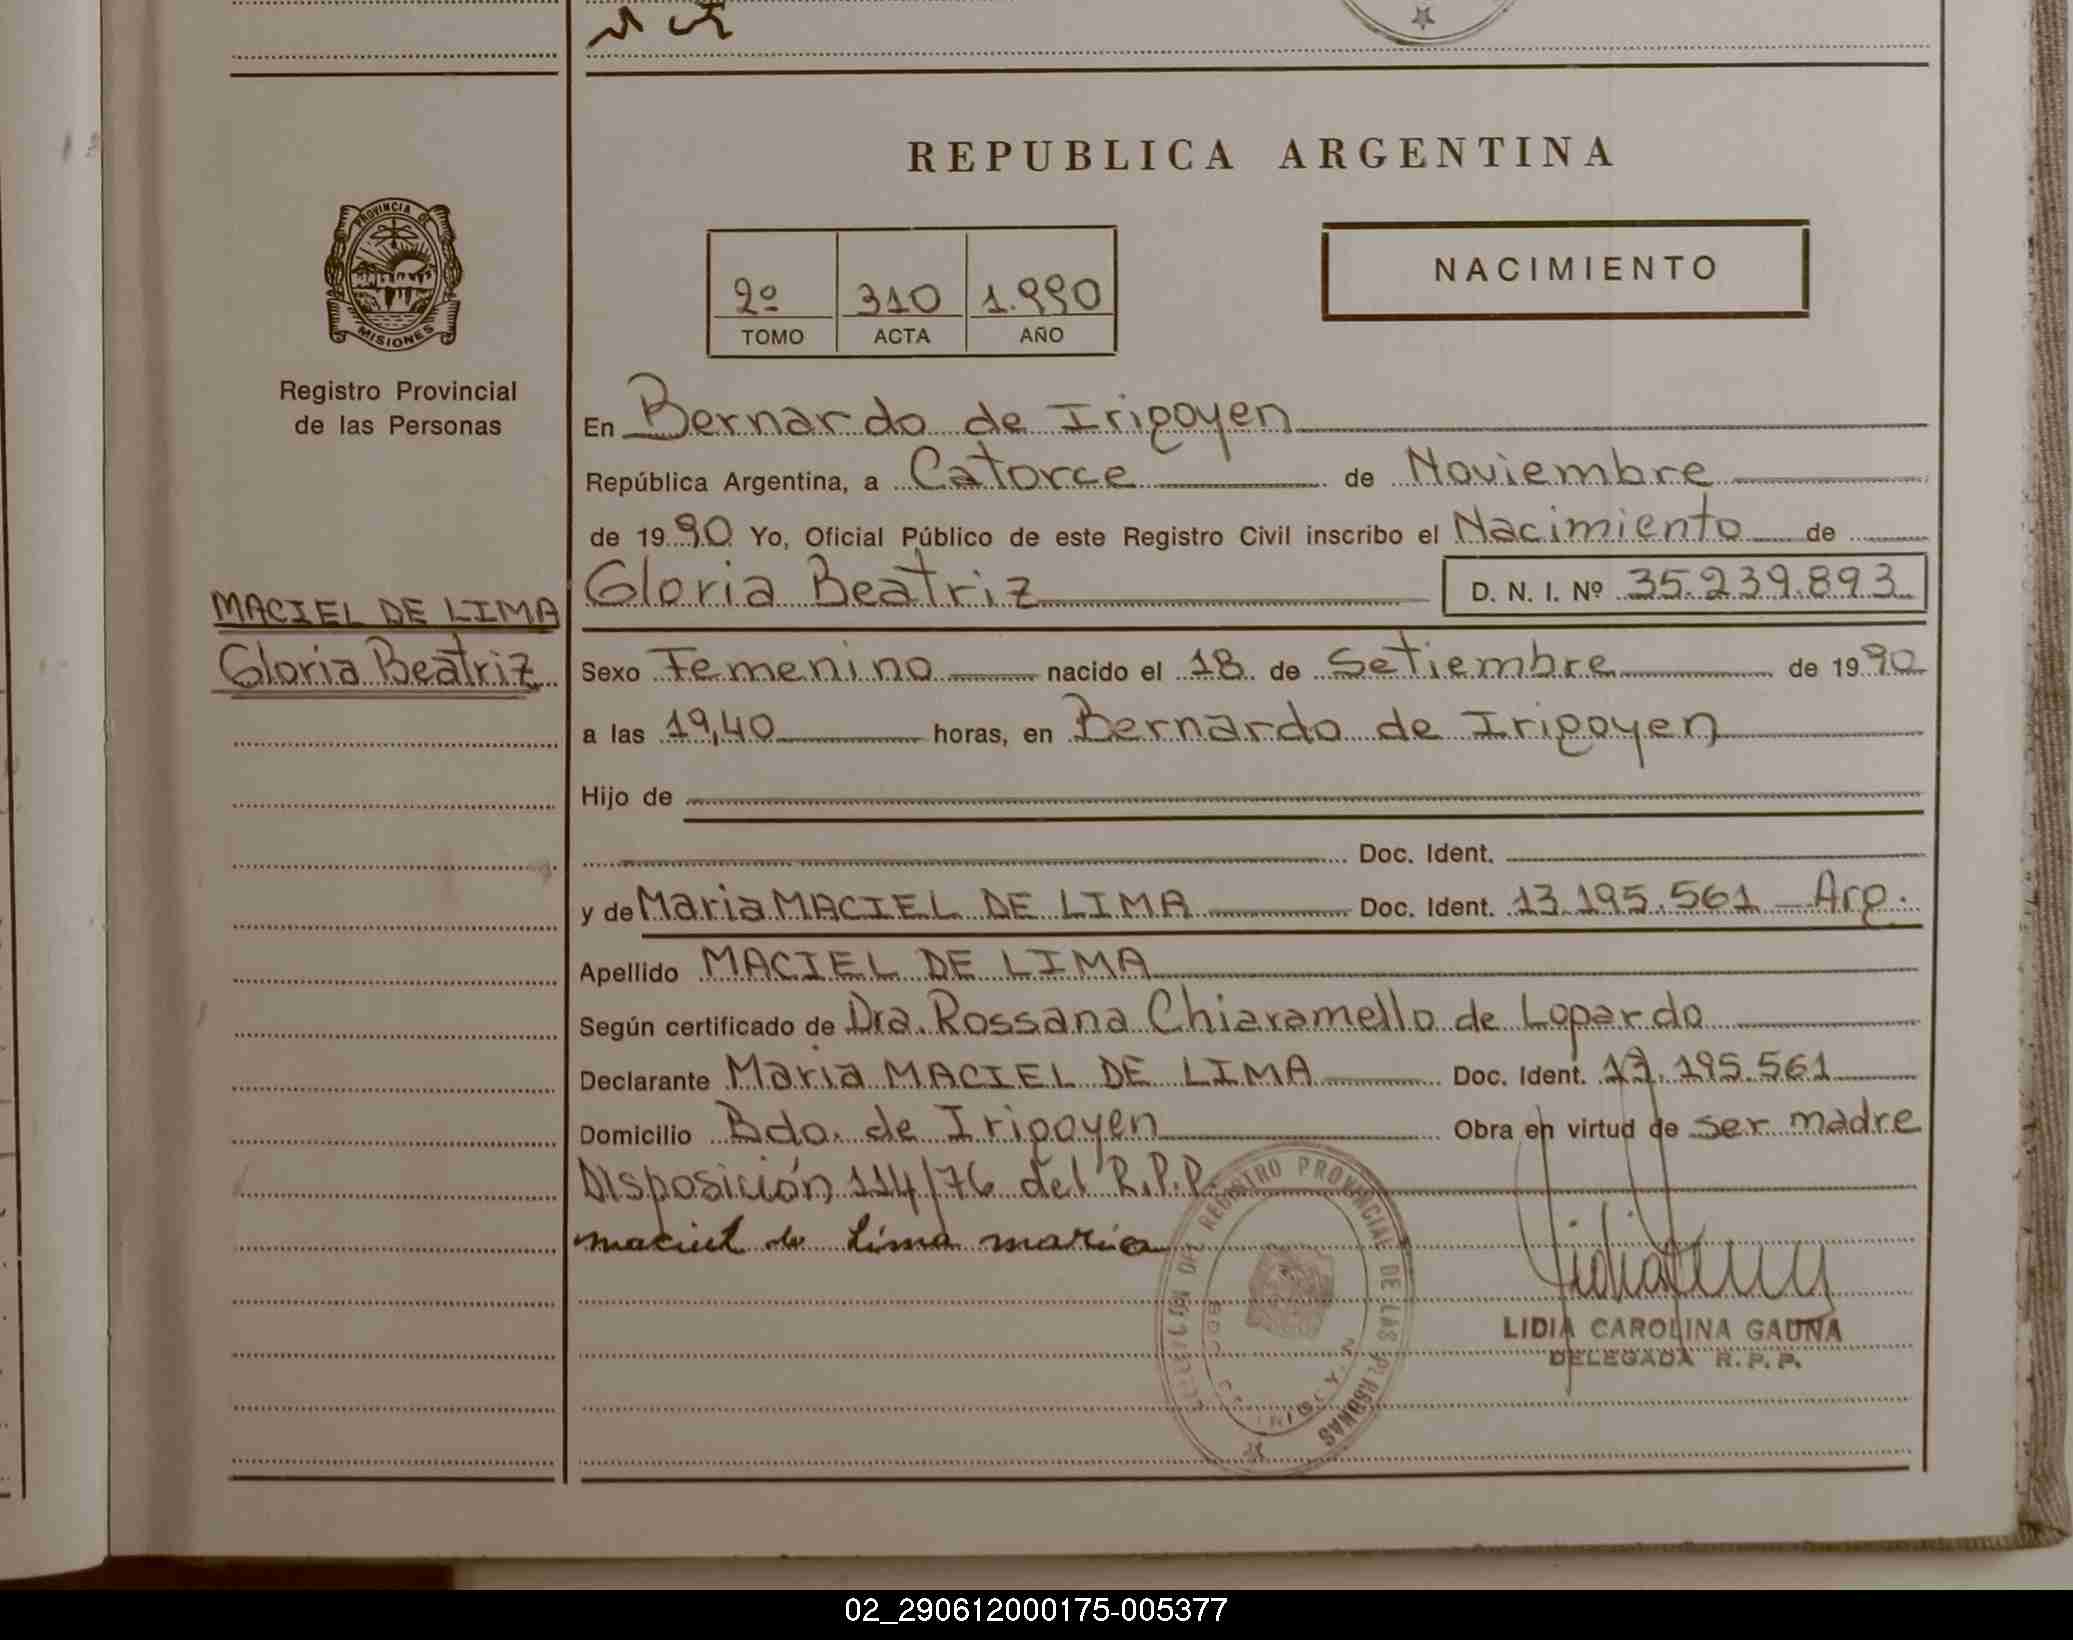 REPUBLICA ARGENTINA
PROVINCIA DE
MISIONES
Registro Provincial
de las Personas
2º 310 1.990
TOMO ACTA AÑO
NACIMIENTO
En Bernardo de Irigoyen
República Argentina, a Catorce de Noviembre
de 1990 Yo, Oficial Público de este Registro Civil inscribo el Nacimiento de
MACIEL DE LIMA
Gloria Beatriz
Gloria Beatriz D. N. I. Nº 35.239.893
Sexo Femenino nacido el 18 de Setiembre de 1990
a las 19,40 horas, en Bernardo de Irigoyen
Hijo de
Doc. Ident.
y de Maria MACIEL DE LIMA Doc. Ident. 13.195.561 Arg.
Apellido MACIEL DE LIMA
Según certificado de Dra. Rossana Chiaramello de Lopardo
Declarante Maria MACIEL DE LIMA Doc. Ident. 13.195.561
Domicilio Bdo. de Irigoyen Obra en virtud de ser madre
Disposición 114/76 del R.P.P.
maciel de Lima maria
REGISTRO PROVINCIAL DE LAS PERSONAS
LIDIA CAROLINA GAUNA
DELEGADA R. P. P.
02_290612000175-005377